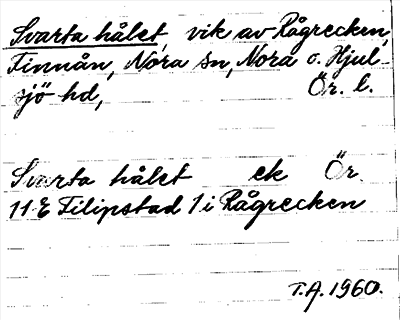 Svarta hålet, vik av Rågrecken,
Finnån, Nora sn, Nora o. Hjul-
sjö hd, Ör. l.
Svarta hålet ek Ör.
11E Filipstad 1 i Rågrecken
T.A. 1960.